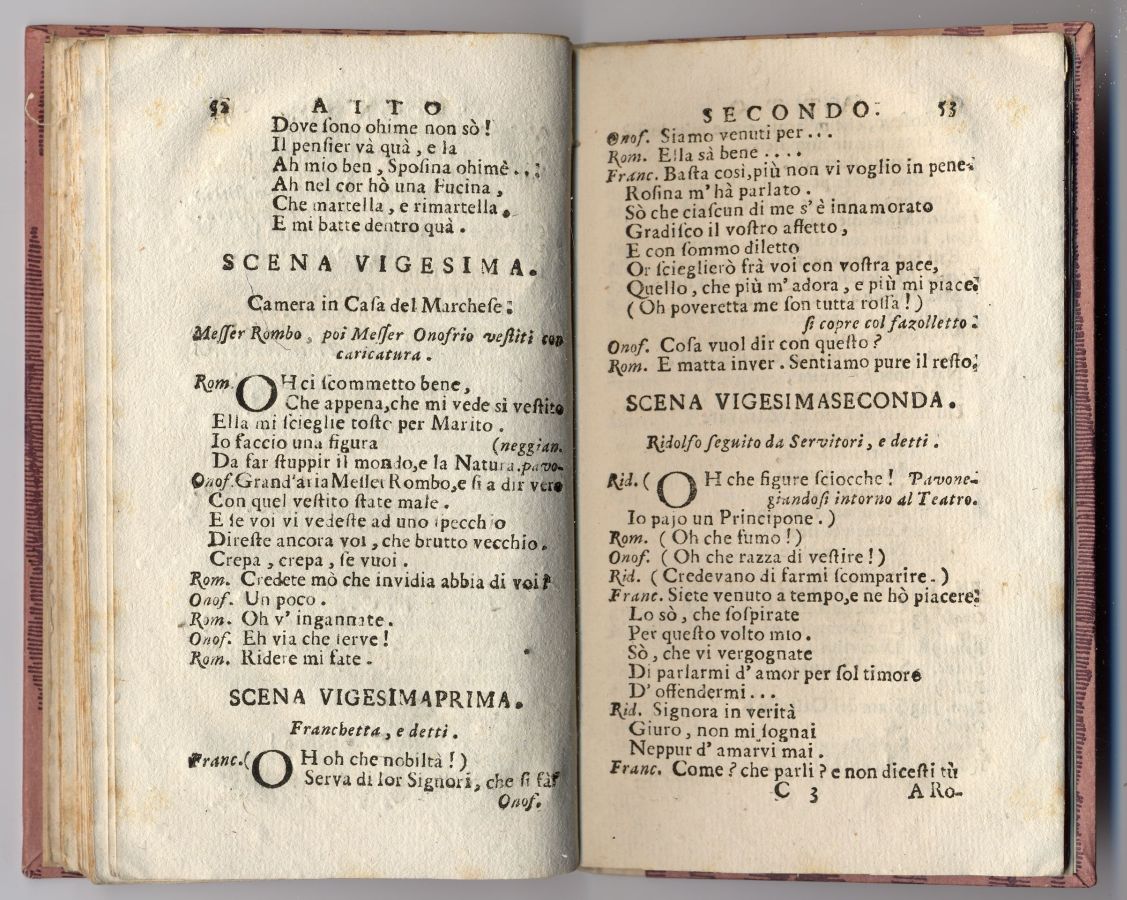 52 ATTO
Dove ſono ohime non sò !
Il penſier và quà , e la
Ah mio ben , Spoſina ohimè . . .
Ah nel cor hò una Fucina ,
Che martella , e rimartella .
E mi batte dentro quà .
SCENA VIGESIMA.
Camera in Caſa del Marcheſe :
Meſſer Rombo , poi Meſſer Onofrio veſtiti con
caricatura .
Rom. OH ci ſcommetto bene ,
Che appena,che mi vede sì veſtito
Ella mi ſcieglie toſto per Marito .
Io faccio una figura (neggian.
Da far ſtuppir il mondo,e la Natura.pavo-
Onof.Grand'aria Meſſer Rombo,e ſi a dir vero
Con quel veſtito ſtate male .
E ſe voi vi vedeſte ad uno ſpecchio
Direſte ancora voi , che brutto vecchio .
Crepa , crepa , ſe vuoi .
Rom. Credete mò che invidia abbia di voi ?
Onof. Un poco .
Rom. Oh v' ingannate .
Onof. Eh via che ſerve !
Rom. Ridere mi fate .
SCENA VIGESIMAPRIMA.
Franchetta , e detti .
Franc.( OH oh che nobiltà ! )
Serva di lor Signori , che ſi fà?
Onof.
SECONDO. 53
Onof. Siamo venuti per . . .
Rom. Ella sà bene . . . .
Franc. Baſta così,più non vi voglio in pene.
Roſina m' hà parlato .
Sò che ciaſcun di me s' è innamorato
Gradiſco il voſtro affetto ,
E con ſommo diletto
Or ſcieglierò frà voi con voſtra pace,
Quello , che più m' adora , e più mi piace.
( Oh poveretta me ſon tutta roſſa ! )
ſi copre col fazolletto .
Onof. Coſa vuol dir con queſto ?
Rom. E matta inver . Sentiamo pure il reſto.
SCENA VIGESIMASECONDA.
Ridolfo ſeguito da Servitori , e detti .
Rid. ( OH che figure ſciocche ! Pavone-
giandoſi intorno al Teatro.
Io pajo un Principone . )
Rom. ( Oh che fumo ! )
Onof. ( Oh che razza di veſtire ! )
Rid. ( Credevano di farmi ſcomparire . )
Franc. Siete venuto a tempo,e ne hò piacere.
Lo sò , che ſoſpirate
Per queſto volto mio .
Sò , che vi vergognate
Di parlarmi d' amor per ſol timore
D' offendermi . . .
Rid. Signora in verità
Giuro , non mi ſognai
Neppur d' amarvi mai .
Franc. Come ? che parli ? e non diceſti tù
C 3 A Ro-